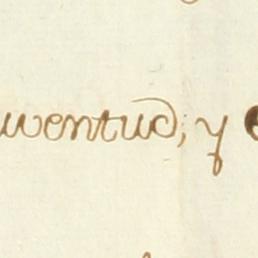 juventud; y